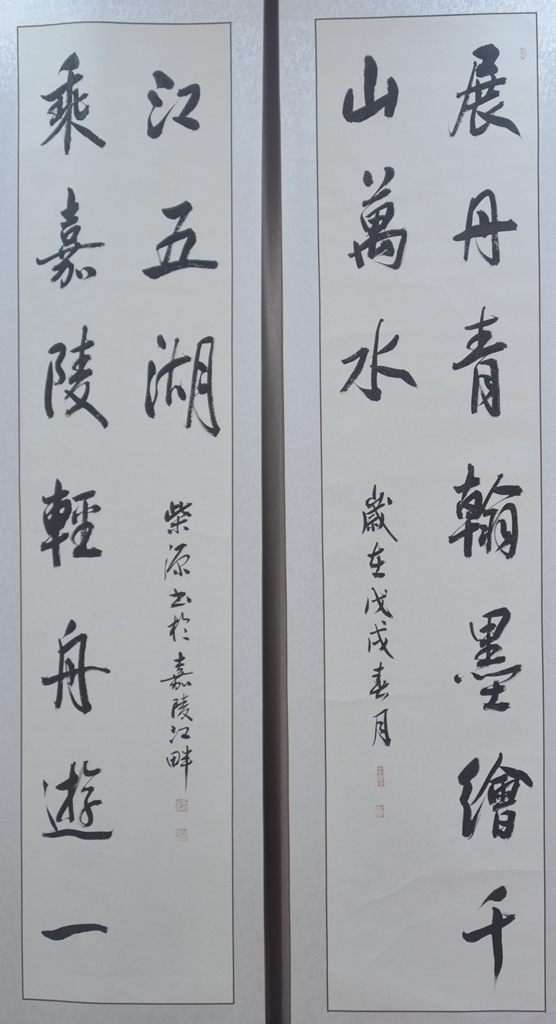 展丹青翰墨繪千
山萬水
歲在戊戌春月
乘嘉陵輕舟遊一
江五湖
柴源书於嘉陵江畔